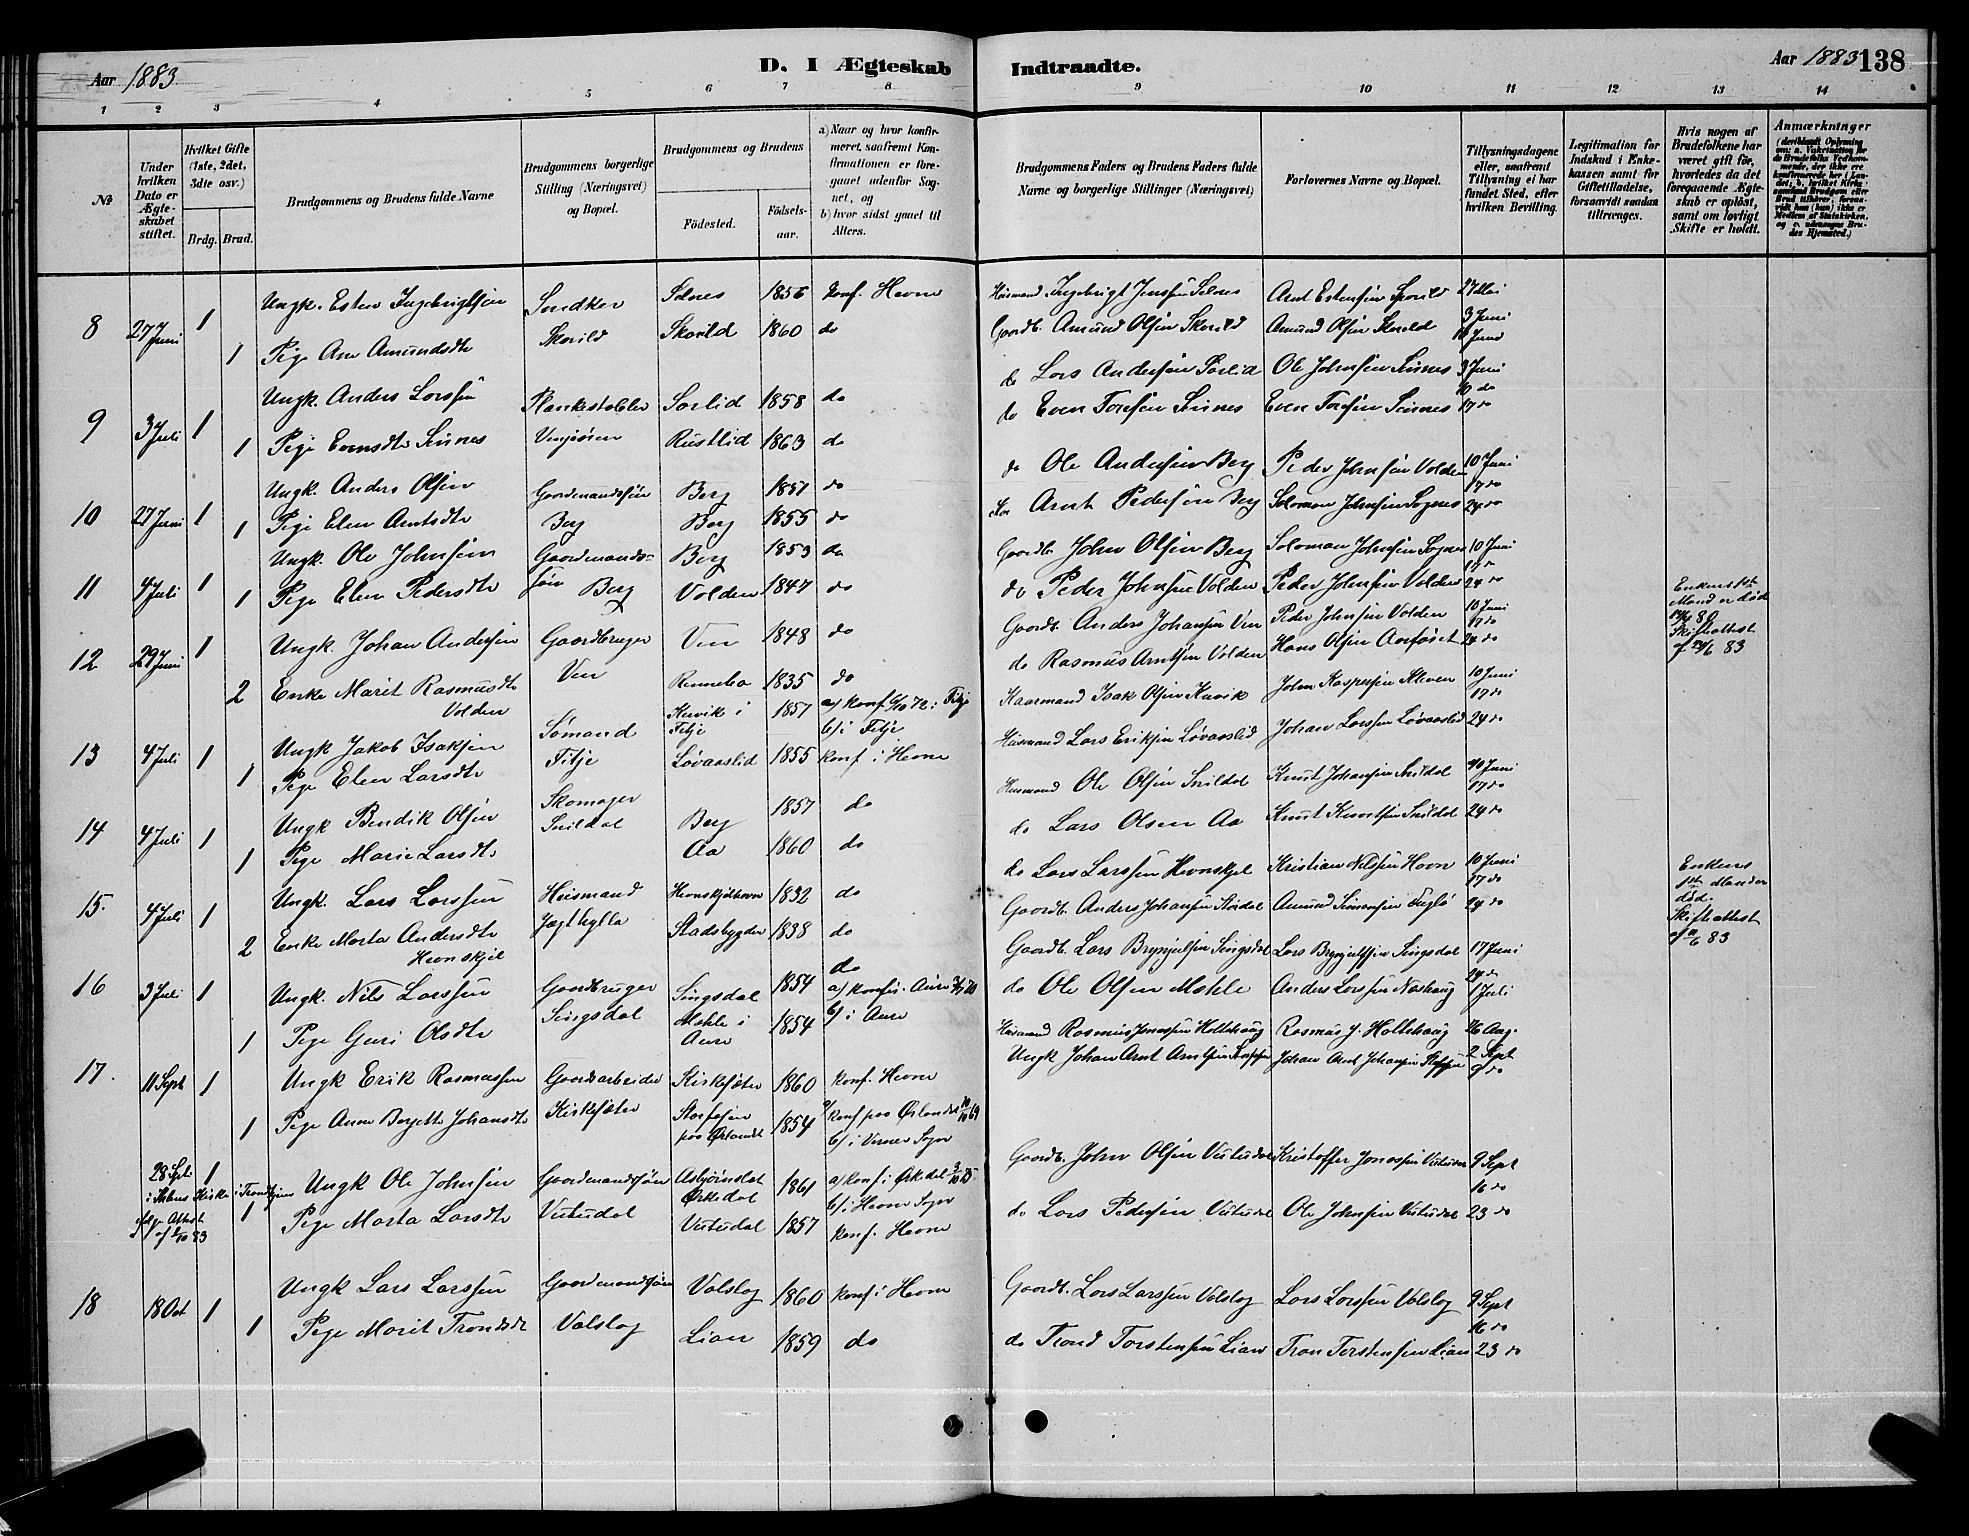 Aar 1883
D. I Ægteskab
Indtraadte.
Aar 1883 138
1 2 3 4 5 6 7 8 9 10 11 12 13 14
No
Under hvilken Dato er Ægteskabet stiftet.
Hvilket Gifte (1ste, 2det, 3die osv.)
Brdg. Brud.
Brudgommens og Brudens fulde Navne
Brudgommens borgerlige Stilling (Næringsvei) og Bopæl.
Brudgommens og Brudens
Fødested.
Fødselsaar.
a) Naar og hvor konfirmeret, saafremt Konfirmationen er foregaaet udenfor Sognet, og
b) hvor sidst gaaet til Alters.
Brudgommens Faders og Brudens Faders fulde Navne og borgerlige Stillinger (Næringsvei)
Forlovernes Navne og Bopæl.
Tillysningsdagene eller, saafremt Tillysning ei har fundet Sted, efter hvilken Bevilling.
Legitimation for Indskud i Enkekassen samt for Giftetilladelse, forsaavidt saadan tiltrænges.
Hvis nogen af Brudefolkene har været gift før, hvorledes da det foregaaende Ægteskab er opløst, samt om lovligt Skifte er holdt.
Anmærkninger
8 27 Juni 1 Ungk. Esten Ingebrigtsen Snedker Selnes 1856 konf. Hevne Huusmand Ingebrigt Jenssen Selnes Arnt Estensen 27 Mai
Skorild 3 Juni
1 Pige Ane Amundsdtr Skorild 1860 do Gaardb. Amund Olsen Skorild Amund Olsen Skorild 10 Juni
9 3 Juli 1 Ungk. Anders Larssen Sorlid 1858 do do Lars Andersen Sorlid Ole Johnsen Sinnes 3 Juni
10 do
1 Pige Evensdtr Sinnes Rustlid 1863 do do Even Toresen Sinnes Even Toresen Sinnes 17 do
10 27 Juni 1 Ungk. Anders Olsen Gaardmandssøn Berg 1857 do do Ole Andersen Berg Peder Johnsen Volden 10 Juni
17 do
1 Pige Elen Arntsdtr Berg Berg 1855 do Arnt Pedersen Berg Solomon Johnsen Sognes 24 do
11 4 Juli 1 Ungk. Ole Johnsen Gaardmands- Berg 1853 do Gaardb. John Olsen Berg Solomon Johnsen Sognes 10 Juni
17 do
1 Pige Elen Pedersdtr søn Berg Volden 1847 do do Peder Johnsen Volden Peder Johnsen Volden 24 do
12 29 Juni 1 Ungk. Johan Andersen Gaardbruger Ven 1848 do Gaardb. Anders Johansen Ven Peder Johnsen Volden 10 Juni
17 do
2 Enke Marit Rasmusdtr Volden Ven Rennebo 1835 do do Rasmus Arntsen Volden Hans Olsen 24 do
Enkens 1ste Mand er død
Skifteattest af 83
13 4 Juli 1 Ungk Jakob Isaksen Sømand Kervik i Fitje 1857 a) konf 72 i Fitje b) i Fitje Huusmand Isak Olsen Kervik John Kaspersen Kleven 10 Juni
17 do
1 Pige Elen Larsdtr Fitje Løvaaslid 1855 konf i Hevne Huusmand Lars Eriksen Løvaaslid Johan Larssen Løvaaslid 24 do
14 4 Juli 1 Ungk Bendik Olsen Skomager Berg 1857 do Huusmand Ole Olsen Snildal Knut Johansen Snildal 10 Juni
17 do
1 Pige Marie Larsdtr Snildal Aa 1860 do do Lars Olsen Aa Knut Knutsen Snildal 24 do
15. 4 Juli 1 Ungk. Lars Larssen Huusmand 1832 do do Lars Larssen Hevnskjel Kristian Nilsen Hovn 10 Juni
17 do
2 Enke Marta Andersdtr Hevnskjel Jægthylla Stadsbygden 1838 do Gaardb. Anders Johansen Amund Simonsen 24 do
Enkens 1ste Mand er død.
Skifteattest af 83
16 3 Juli 1 Ungk. Nils Larssen Gaardbruger Singsdal 1854 do Gaardb. Lars Brynjulfsen Singsdal Lars Brynjulfsen Singsdal 17 Juni
24 do
1 Pige Guri Olsdtr Singsdal Mehle i Aure 1854 a) konf i Aure b) i Aure do Ole Olsen Mehle Anders Larssen 1 Juli
17. 11 Sept 1 Ungk Erik Rasmussen Gaardsarbeider Kirkesæter 1860 konf. Hevne Huusmand Rasmus Jonassen Holtehaug Rasmus J. Holtehaug 26 Aug.
2 Sept
1 Pige Anne Bergitte Johansdtr Kirkesæter Storfosen paa Ørlandet 1854 a/ konf paa Ørlandet 69 b/ i Sogn Ungk Johan Arnt Arntsen Johan Arnt Johansen 9 do
28 Sept i Kirke i Trondhjem ifølge Attest af 83
1 Ungk Ole Johnsen Gaardmandssøn Asbjørnslet Ørkedal 1861 a) konf i Ørkedal 75 b/ i Hevne Sogn Gaardb. John Olsen Vutudal Kristoffer Jonassen Vutudal 9 Sept
16 do
1 Pige Marta Larsdtr Vutudal Vutudal 1857 konf. Hevne do Lars Pedersen Vutudal Ole Johnsen Vutudal 23 do
18 18 Oct 1 Ungk Lars Larssen Gaardmandssøn Valslag 1860 konf i Hevne Gaardb. Lars Larssen Valslag Lars Larssen Valslag 9 Sept
16 do
1 Pige Marit Trondsdtr Valslag Lian 1859 do do Trond Torstensen Lian Tron Torstensen Lian 23 do